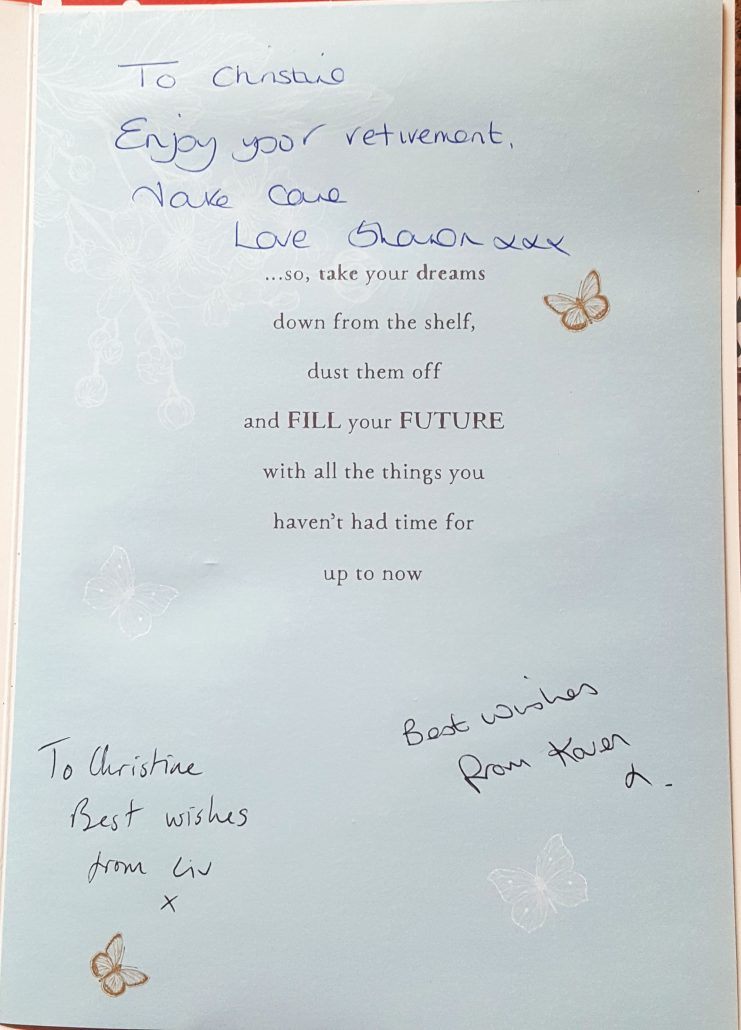 To Christine
Enjoy your retirement.
Take Care
Love Sharon xxx
...so, take your dreams
down from the shelf,
dust them off
and FILL your FUTURE
with all the things you
haven't had time for
up to now
Best wishes
From Karen
x.
To Christine
Best wishes
from Liv
x